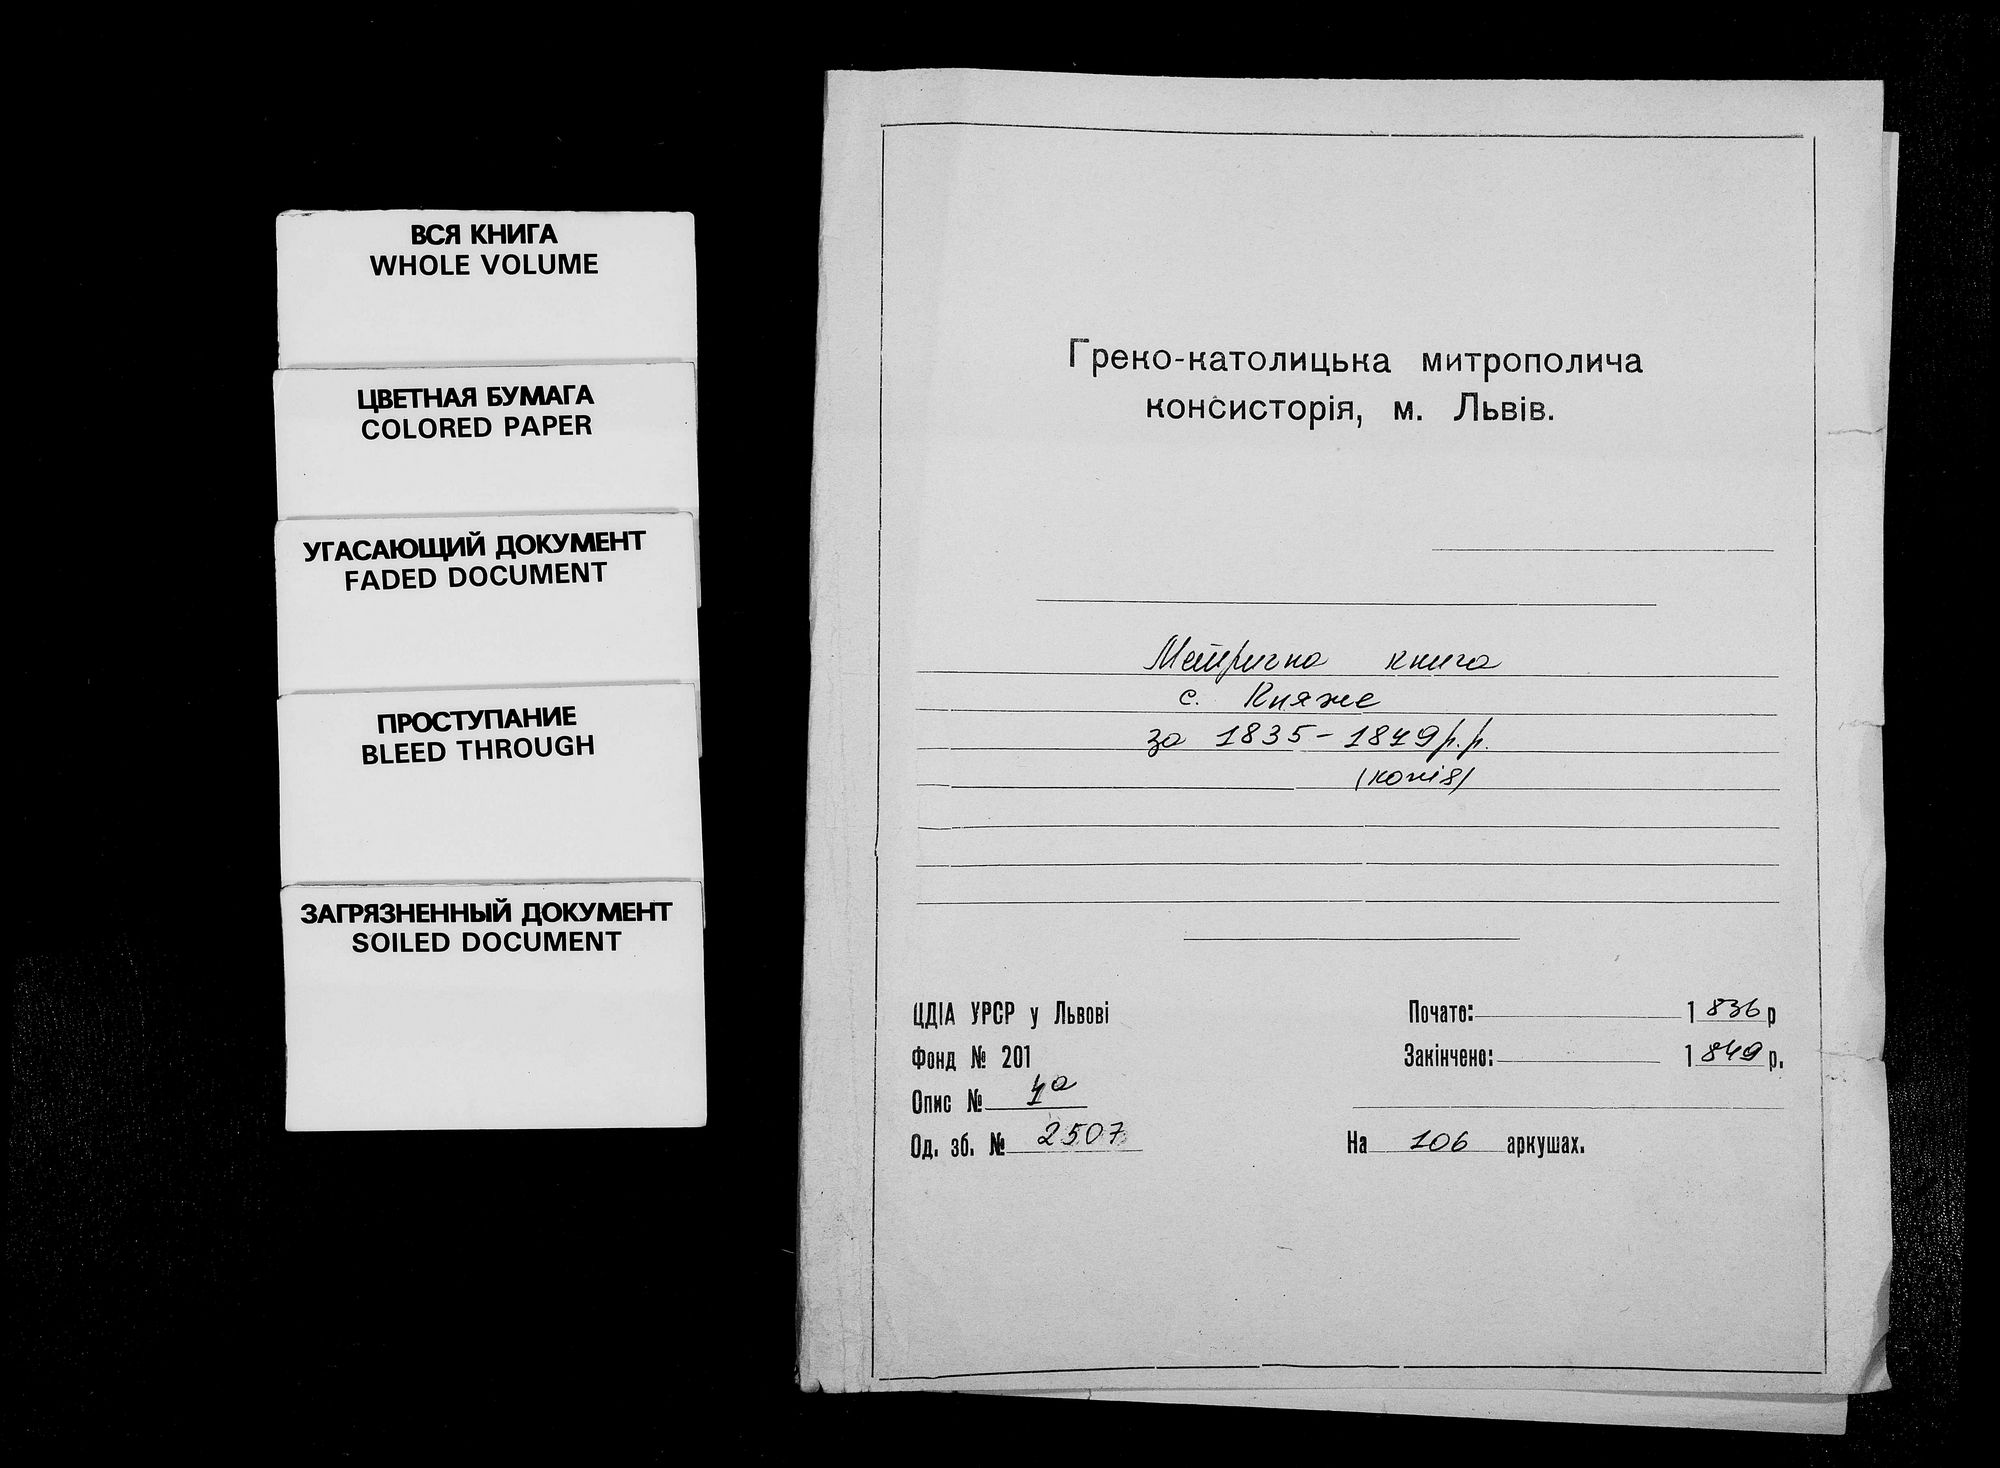 ВСЯ КНИГА
WHOLE VOLUME
ЦВЕТНАЯ БУМАГА
COLORED PAPER
УГАСАЮЩИЙ ДОКУМЕНТ
FADED DOCUMENT
ПРОСТУПАНИЕ
BLEED THROUGH
ЗАГРЯЗНЕННЫЙ ДОКУМЕНТ
SOILED DOCUMENT
Греко-католицька митрополича
консисторія, м. Львів.
Метрична книга
с. Княже
за 1835-1849 р.р.
(копія)
ЦДІА УРСР у Львові
Фонд № 201
Опис № 4а
Од. зб. № 2507
Почате: 1836 р
Закінчено: 1849 р.
На 106 аркушах.